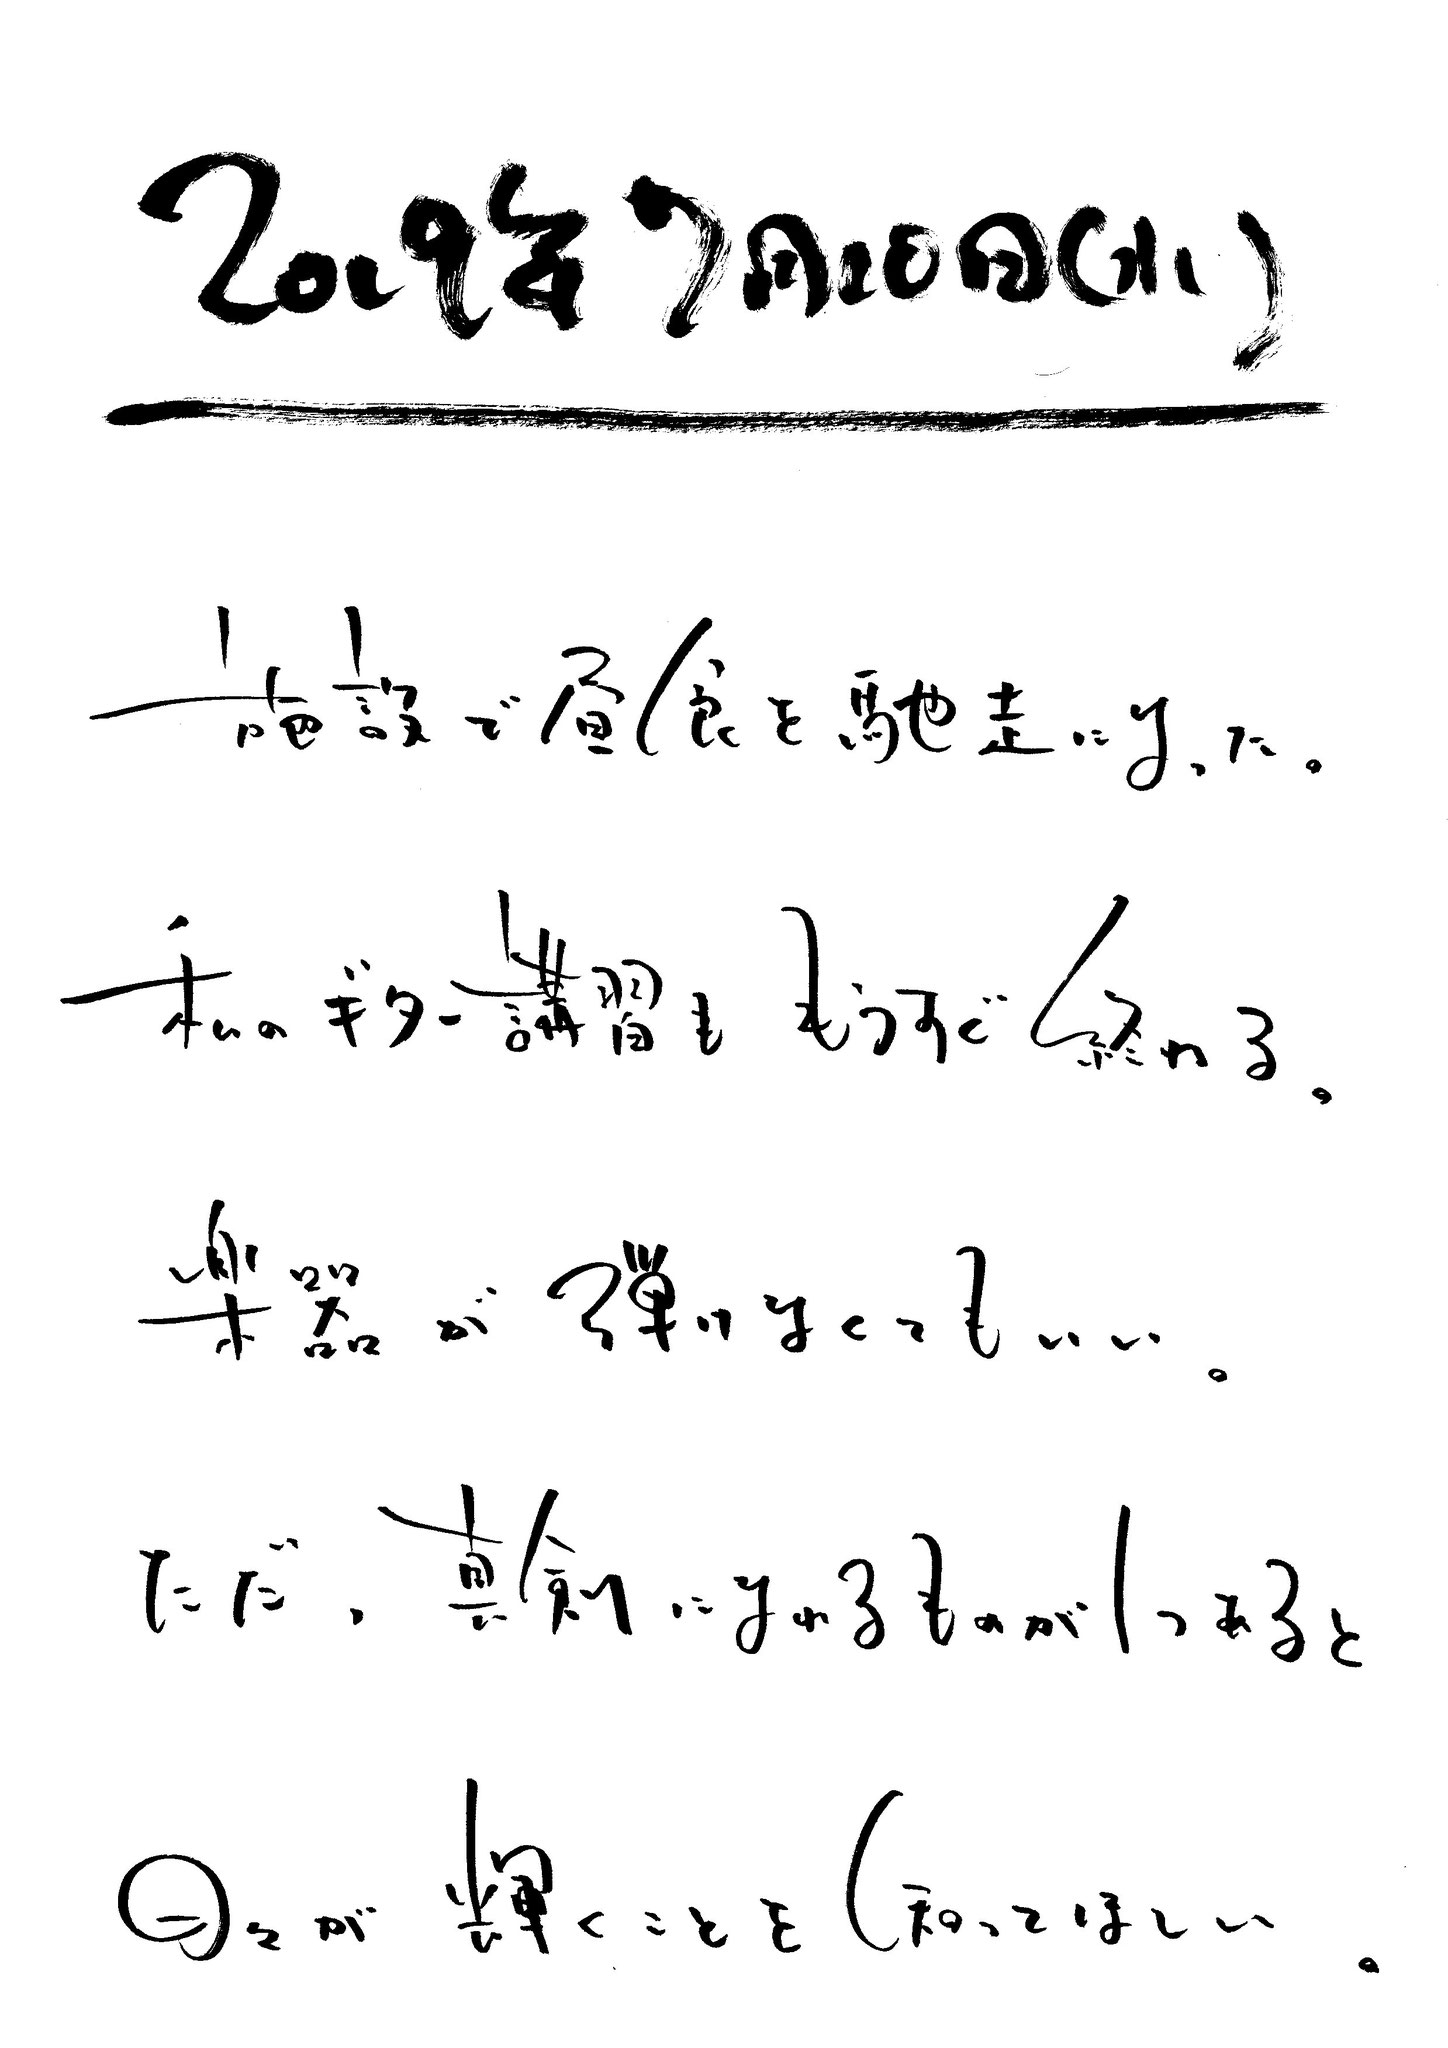 2019年7月10日(水)
施設で昼食を馳走になった。
私のギター講習ももうすぐ終わる。
楽器が弾けなくてもいい。
ただ、真剣になれるものが1つあると
日々が輝くことを知ってほしい。